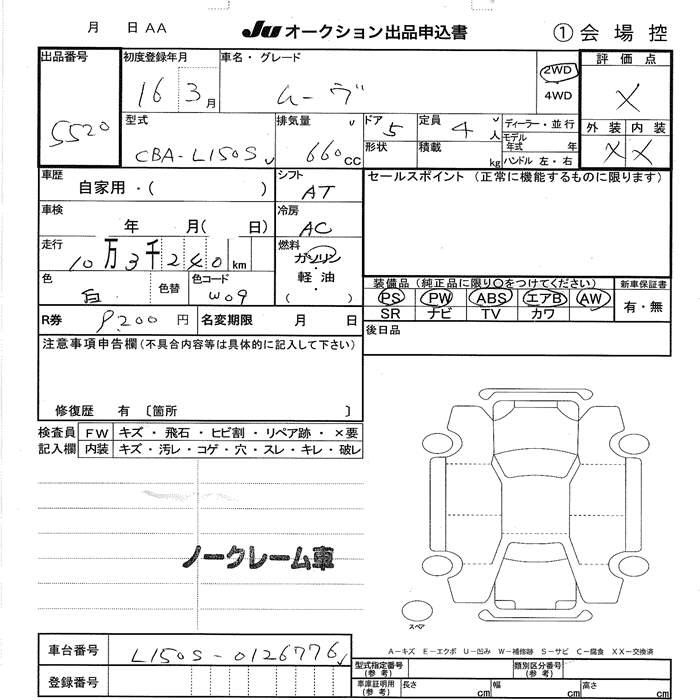 月 日 AA JU オークション出品申込書 ① 会場控
出品番号 初度登録年月 車名・グレード 2WD 評価点
5520 16 3月 ムーヴ 4WD ×
型式 排気量 ドア 定員 ディーラー・並行 外装 内装
CBA-L150S 660 CC 5 4 人 モデル年式 年 × ×
形状 積載 kg ハンドル 左・右
車歴 自家用・( ) シフト AT セールスポイント (正常に機能するものに限ります)
車検 年 月( 日) 冷房 AC
走行 10万3千240 km 燃料 ガソリン・軽油
色 白 色替 色コード W09 装備品 (純正品に限り○をつけてください) 新車保証書
PS PW ABS エアB AW 有・無
SR ナビ TV カワ
R券 9,200 円 名変期限 月 日 後日品
注意事項申告欄 (不具合内容等は具体的に記入して下さい)
修復歴 有 〔箇所 〕
検査員 FW キズ・飛石・ヒビ割・リペア跡・×要
記入欄 内装 キズ・汚レ・コゲ・穴・スレ・キレ・破レ
ノークレーム車
スペア
A-キズ E-エクボ U-凹み W-補修跡 S-サビ C-腐食 XX-交換済
車台番号 L150S-0126776 型式指定番号 (参考) 類別区分番号 (参考)
登録番号 車庫証明用 (参考) 長さ cm 幅 cm 高さ cm